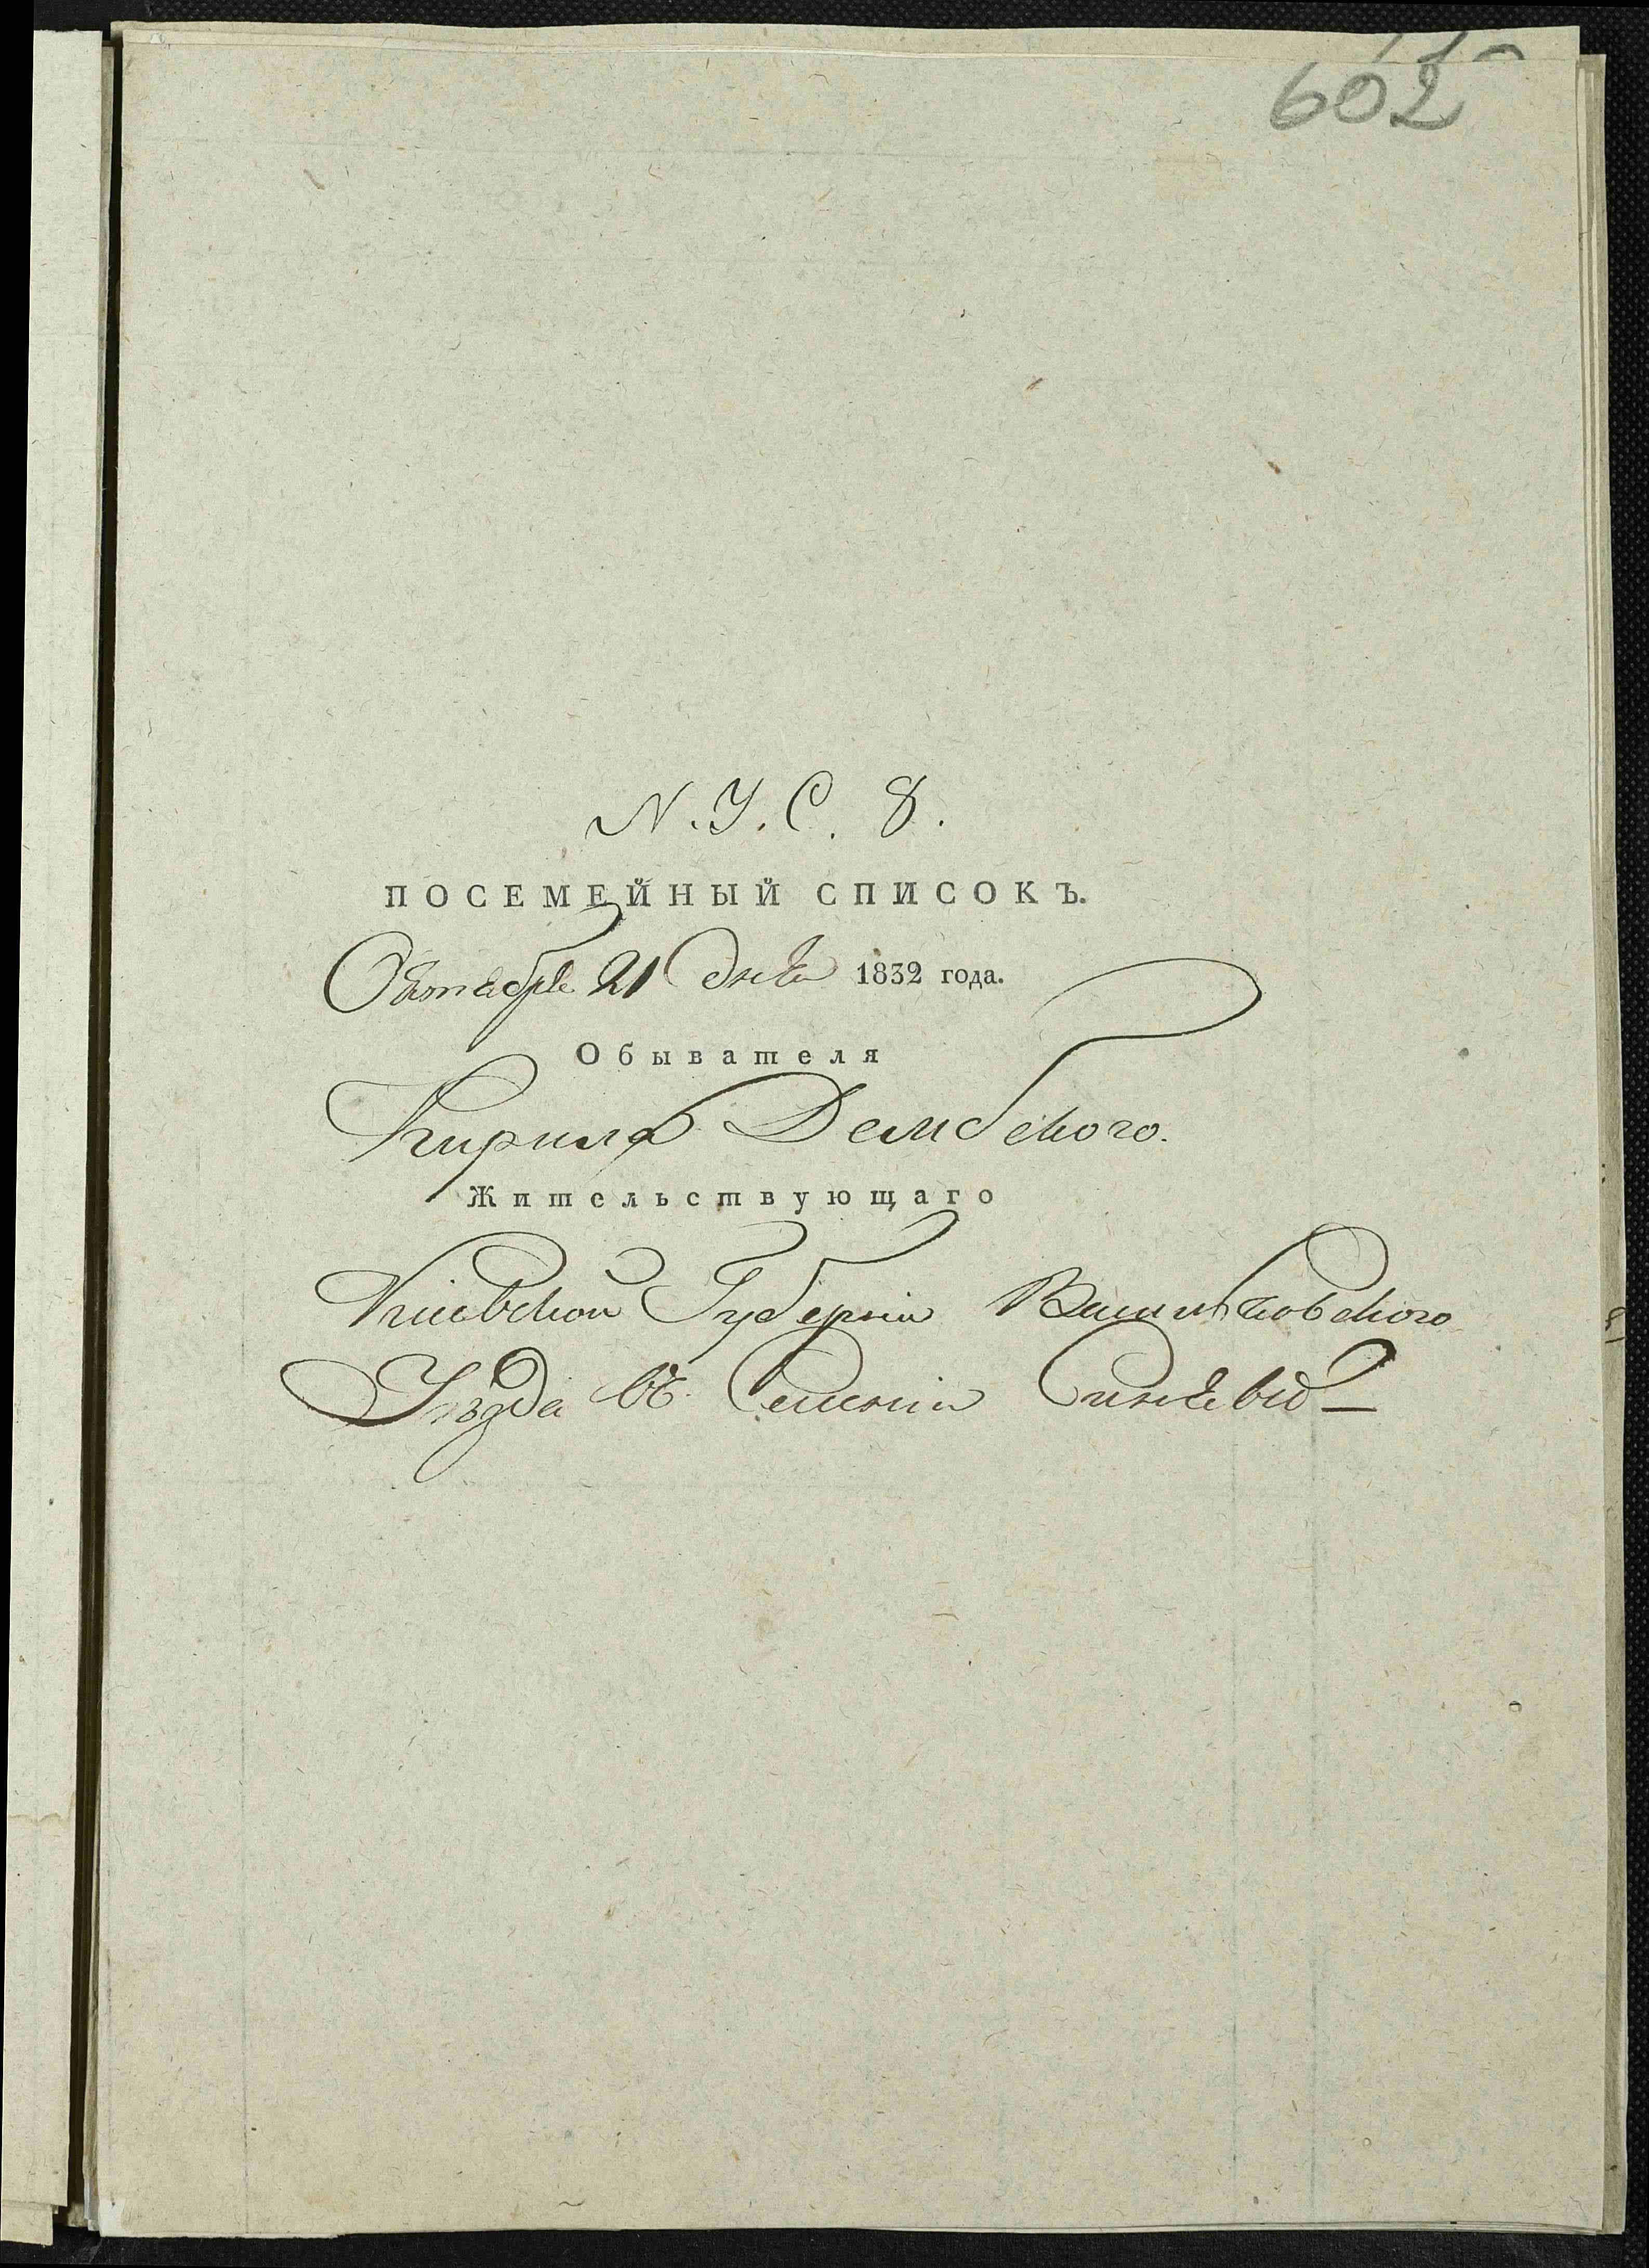 602
N. У. С. 8.
ПОСЕМЕЙНЫЙ СПИСОКЪ.
Октября 21 дня 1832 года.
Обывателя
Кирила Дембского.
Жительствующаго
Кіевской Губерніи Васильковского
Уѣзда въ Селеніи Синявѣ